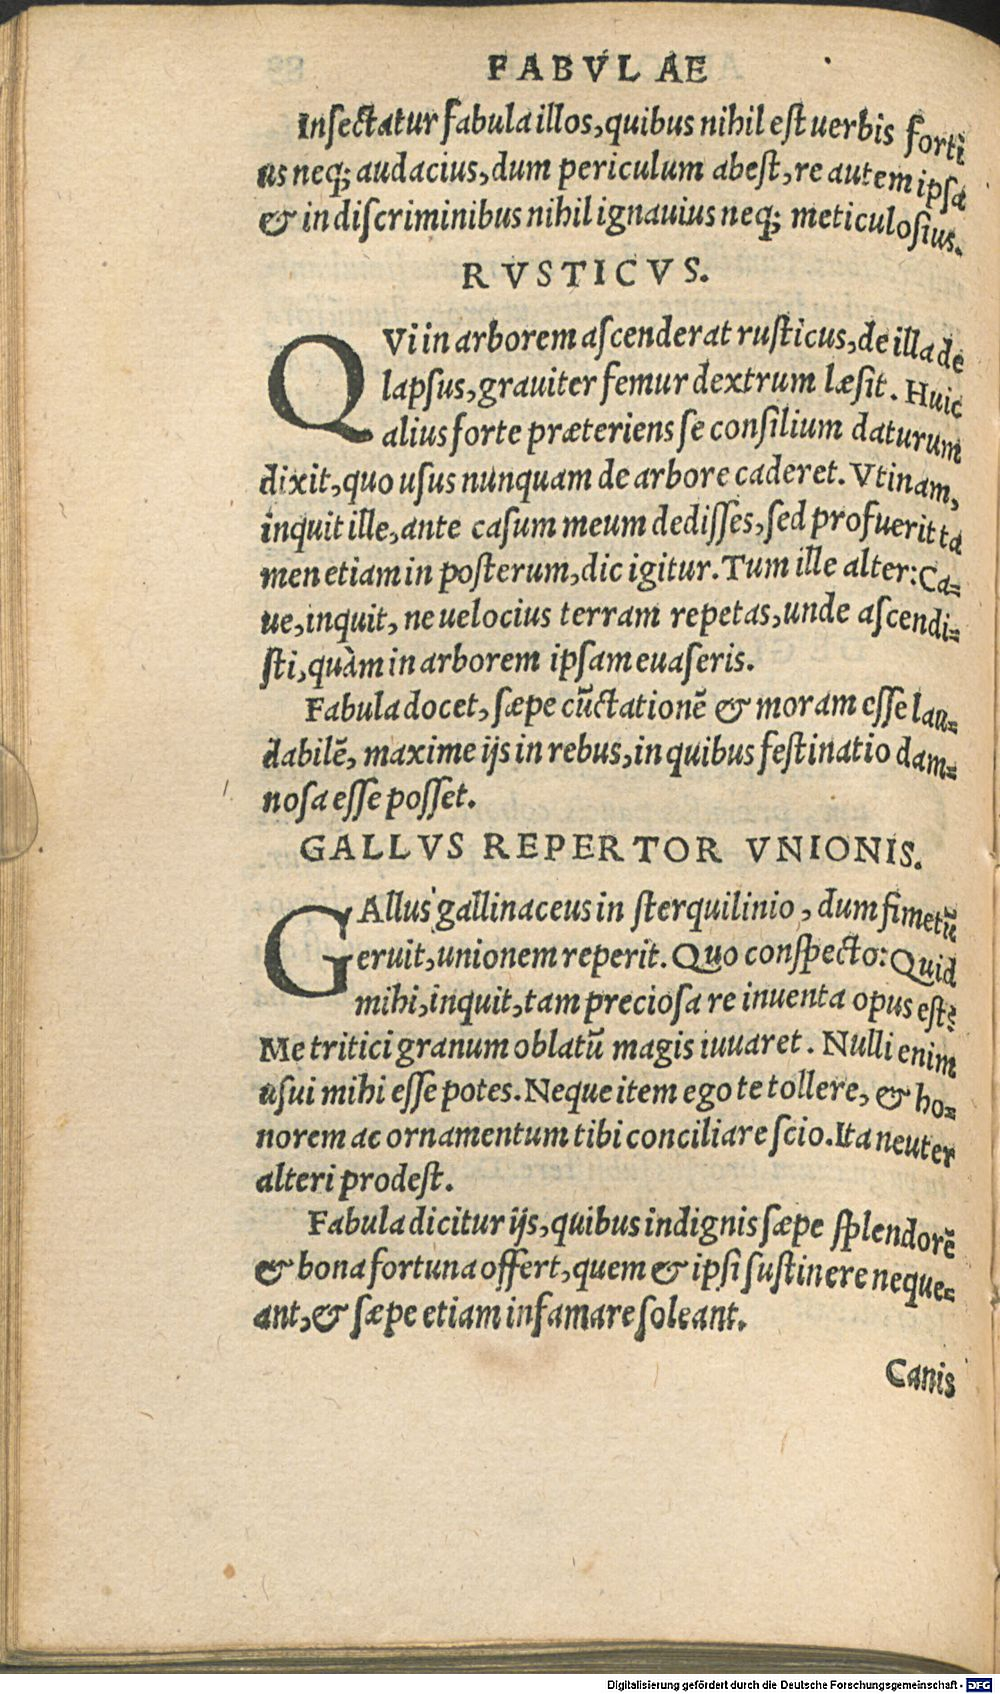 FABVLAE
Inſectatur fabula illos, quibus nihil eſt uerbis forti
us neq; audacius, dum periculum abeſt, re autem ipſa
& in diſcriminibus nihil ignauius neq; meticuloſius.
RVSTICVS.
QVi in arborem aſcenderat ruſticus, de illa de
lapſus, grauiter femur dextrum læſit. Huic
alius forte præteriens ſe conſilium daturum
dixit, quo uſus nunquam de arbore caderet. Vtinam,
inquit ille, ante caſum meum dediſſes, ſed profuerit ta
men etiam in poſterum, dic igitur. Tum ille alter: Ca=
ue, inquit, ne uelocius terram repetas, unde aſcendi=
ſti, quàm in arborem ipſam euaſeris.
Fabula docet, ſæpe cũctationẽ & moram eſſe lau=
dabilẽ, maxime ijs in rebus, in quibus feſtinatio dam=
noſa eſſe poſſet.
GALLVS REPERTOR VNIONIS.
GAllus gallinaceus in ſterquilinio, dum fimetũ
eruit, unionem reperit. Quo conſpecto: Quid
mihi, inquit, tam precioſa re inuenta opus eſt?
Me tritici granum oblatũ magis iuuaret. Nulli enim
uſui mihi eſſe potes. Neque item ego te tollere, & ho=
norem ac ornamentum tibi conciliare ſcio. Ita neuter
alteri prodeſt.
Fabula dicitur ijs, quibus indignis ſæpe ſplendorẽ
& bona fortuna offert, quem & ipſi ſuſtinere neque=
ant, & ſæpe etiam infamare ſoleant.
Canis
Digitalisierung gefördert durch die Deutsche Forschungsgemeinschaft - DFG